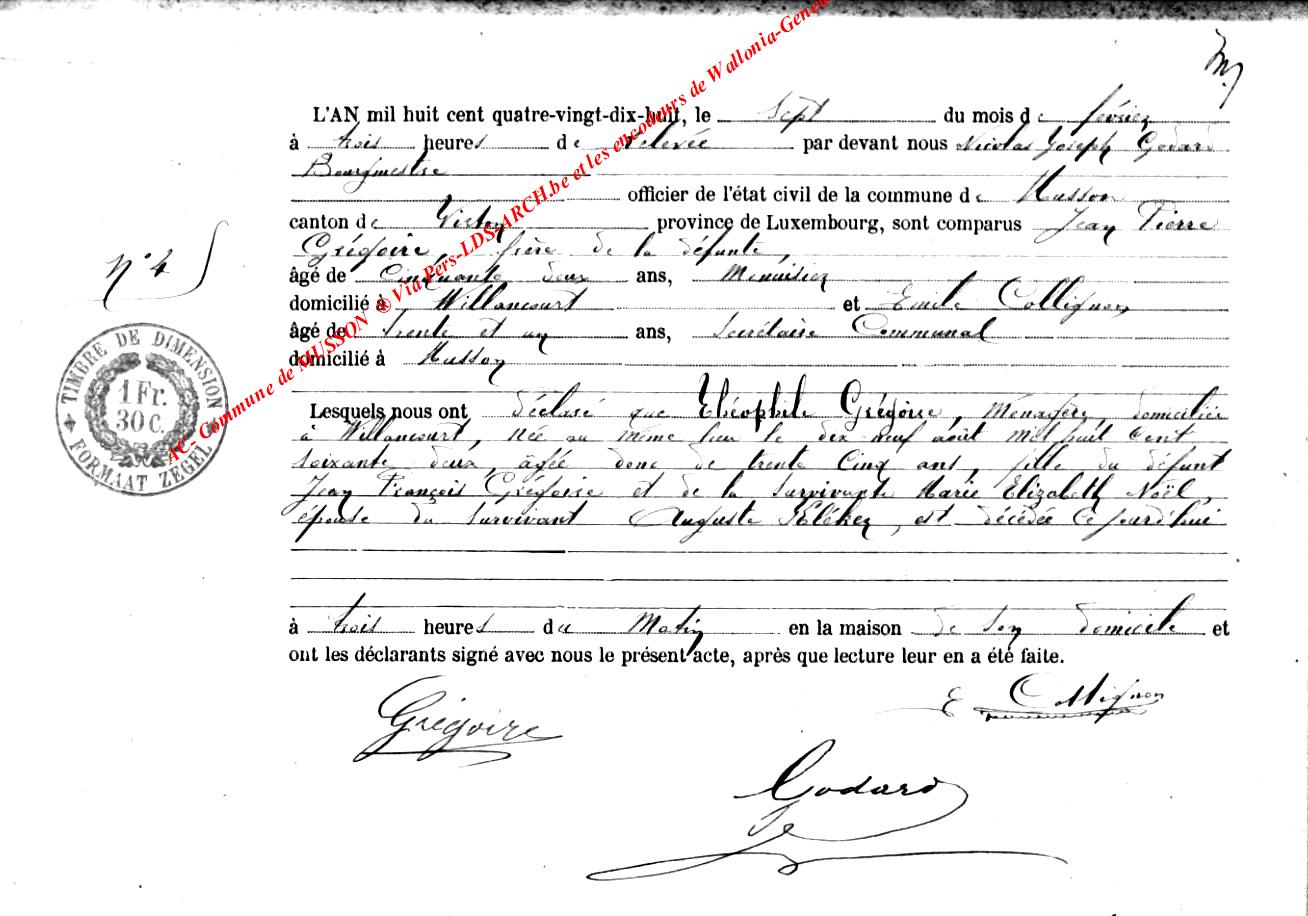 L'AN mil huit cent quatre-vingt-dix-huit, le sept du mois de février
à trois heures de relevée par devant nous Nicolas Joseph Godard
Bourgmestre
officier de l'état civil de la commune de Musson
canton de Virton province de Luxembourg, sont comparus Jean Pierre
Grégoire, frère de la défunte,
âgé de Cinquante deux ans, Menuisier
domicilié à Willancourt et Emile Collignon
âgé de trente et un ans, Secrétaire Communal
domicilié à Musson
Lesquels nous ont déclaré que Théophile Grégoire, Ménagère, domiciliée
à Willancourt, née au même lieu le dix neuf août mil huit cent
soixante deux, âgée donc de trente cinq ans, fille du défunt
Jean François Grégoire et de la survivante Marie Elizabeth Noël,
épouse du survivant Auguste, est décédée ce jourd'hui
à trois heures du Matin en la maison de son domicile et
ont les déclarants signé avec nous le présent acte, après que lecture leur en a été faite.
Grégoire
E Collignon
Godard
N° 4
TIMBRE DE DIMENSION
1 Fr.
30 c.
FORMAAT ZEGEL
AC- Commune de MUSSON ® Via Pers-LDS-ARCH.be et les encodeurs de Wallonia-Geneu